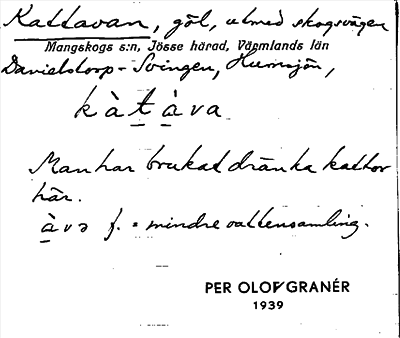 Kattavan, göl, utmed skogsvägen
Mangskogs s:n, Jösse härad, Värmlands län
Danielstorp-Svingen, Humsjön,
kàtàva
Man har brukat dränka kattor
här.
àvə f. = mindre vattensamling.
PER OLOF GRANÉR
1939